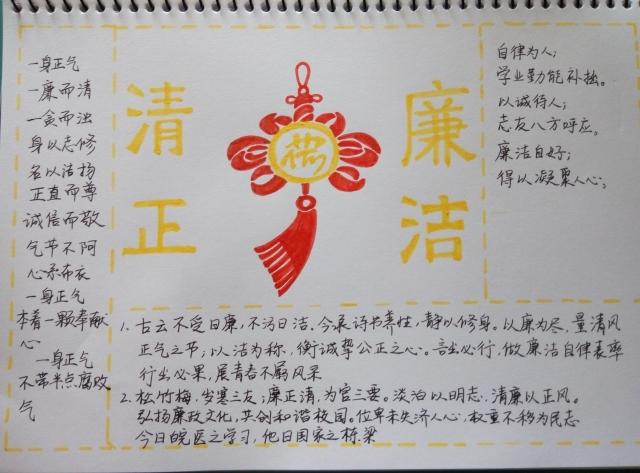 一身正气
一廉而清
一贪而浊
身以志修
名以洁扬
正直而尊
诚信而敬
气节不阿
心系布衣
一身正气
本着一颗奉献
心
一身正气
不带半点腐败
气
清正
廉洁
自律为人;
学业勤能补拙。
以诚待人;
志友八方呼应。
廉洁自好;
得以凝聚人心;
1. 古云不受曰廉,不污曰洁,今承诗书养性,静以修身。以廉为尽,量清风
正气之节;以洁为称,衡诚挚公正之心。言出必行,做廉洁自律表率
行出必果,展青春不腐风采
2. 松竹梅,岁寒三友;廉正清,为官三要。淡泊以明志,清廉以正风。
弘扬廉政文化,共创和谐校园。位卑未失济人心,权重不移为民志
今日皖医之学习,他日国家之栋梁